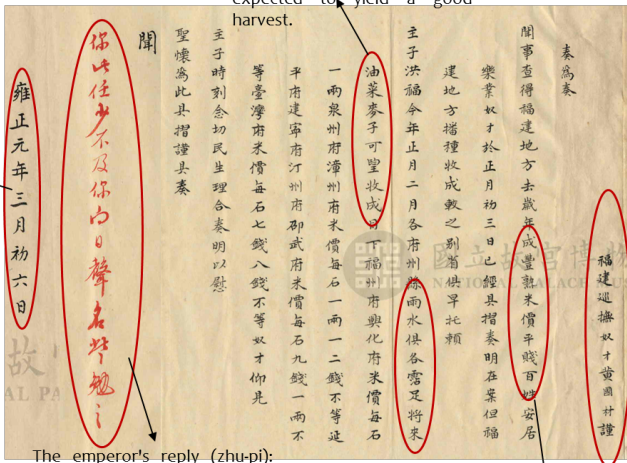 expected to yield a good
harvest.
福建巡撫奴才黄國材謹
奏為奏
聞事查得福建地方去歲年成豐熟米價平賤百姓安居
樂業奴才於正月初三日已經具摺奏明在案但福
建地方播種收成較之别省俱早托賴
主子洪福今年正月二月各府州縣雨水俱各霑足將來
油菜麥子可豐收成目下福州府興化府米價每石
一兩泉州府漳州府米價每石一兩一二錢不等延
平府建寧府汀州府邵武府米價每石九錢一兩不
等臺灣府米價每石七錢八錢不等奴才仰見
主子時刻念切民生理合奏明以慰
聖懷為此具摺謹具奏
聞
你此任少不及你向日聲名些勉之
雍正元年三月初六日
國立故宮博物
NATIONAL PALACE MUS
故
AL PA
The emperor's reply (zhu-pi):